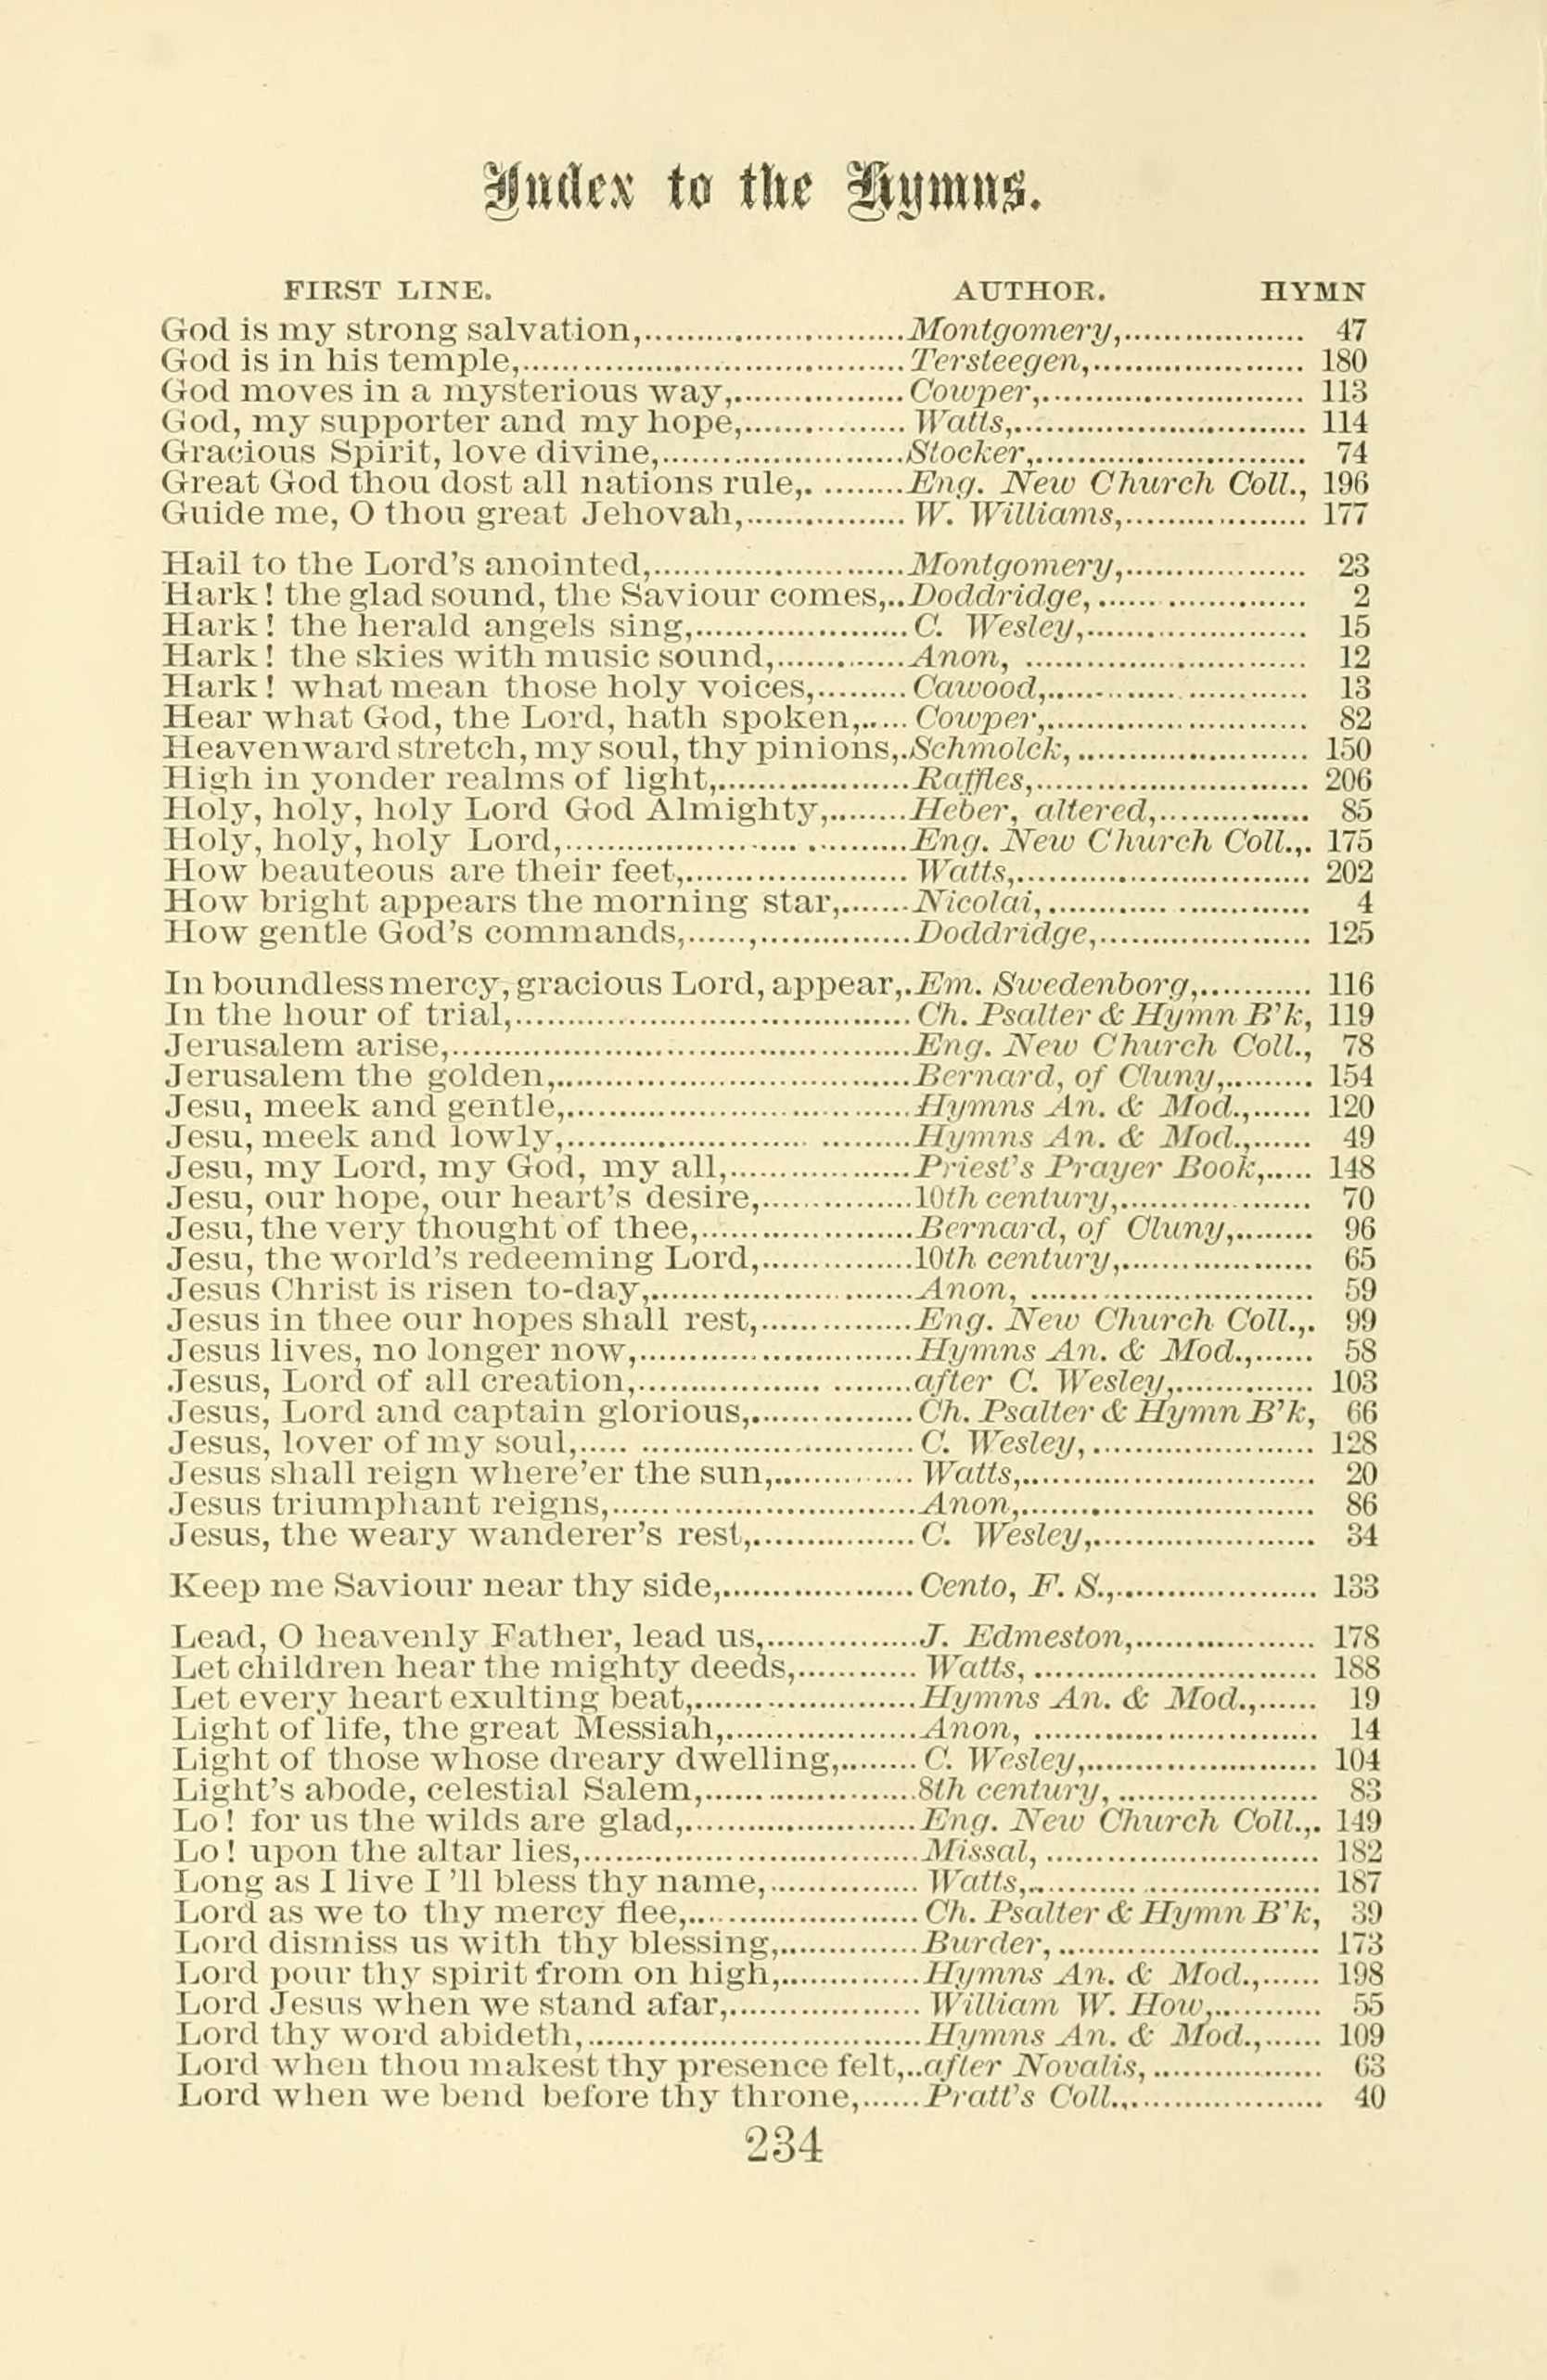 Index to the Hymns.
FIRST LINE. AUTHOR. HYMN
God is my strong salvation,........................Montgomery,.................. 47
God is in his temple,....................................Tersteegen,..................... 180
God moves in a mysterious way,.................Cowper,.......................... 113
God, my supporter and my hope,................Watts,............................. 114
Gracious Spirit, love divine,........................Stocker,........................... 74
Great God thou dost all nations rule,. ........Eng. New Church Coll., 196
Guide me, O thou great Jehovah,................W. Williams,.................. 177
Hail to the Lord's anointed,.........................Montgomery,.................. 23
Hark! the glad sound, the Saviour comes,..Doddridge,..................... 2
Hark! the herald angels sing,.....................C. Wesley,...................... 15
Hark! the skies with music sound,.............Anon, ............................ 12
Hark! what mean those holy voices,.........Cawood,.......................... 13
Hear what God, the Lord, hath spoken,.....Cowper,.......................... 82
Heavenward stretch, my soul, thy pinions,.Schmolck,....................... 150
High in yonder realms of light,...................Raffles,........................... 206
Holy, holy, holy Lord God Almighty,........Heber, altered,............... 85
Holy, holy, holy Lord,....................... ..........Eng. New Church Coll.,. 175
How beauteous are their feet,......................Watts,............................. 202
How bright appears the morning star,.......Nicolai,.......................... 4
How gentle God's commands,......,...............Doddridge,..................... 125
In boundless mercy, gracious Lord, appear,.Em. Swedenborg,........... 116
In the hour of trial,.......................................Ch. Psalter & Hymn B'k, 119
Jerusalem arise,..............................................Eng. New Church Coll., 78
Jerusalem the golden,...................................Bernard, of Cluny,......... 154
Jesu, meek and gentle,..................................Hymns An. & Mod.,...... 120
Jesu, meek and lowly,........................ .........Hymns An. & Mod.,...... 49
Jesu, my Lord, my God, my all,..................Priest's Prayer Book,..... 148
Jesu, our hope, our heart's desire,...............10th century,................... 70
Jesu, the very thought of thee,.....................Bernard, of Cluny,........ 96
Jesu, the world's redeeming Lord,...............10th century,................... 65
Jesus Christ is risen to-day,..........................Anon, ............................ 59
Jesus in thee our hopes shall rest,...............Eng. New Church Coll.,. 99
Jesus lives, no longer now,...........................Hymns An. & Mod.,...... 58
Jesus, Lord of all creation,.................. ........after C. Wesley,.............. 103
Jesus, Lord and captain glorious,................Ch. Psalter & Hymn B'k, 66
Jesus, lover of my soul,..... ...........................C. Wesley,...................... 128
Jesus shall reign where'er the sun,..............Watts,............................. 20
Jesus triumphant reigns,..............................Anon,............................. 86
Jesus, the weary wanderer's rest,................C. Wesley,...................... 34
Keep me Saviour near thy side,...................Cento, F. S.,.................... 133
Lead, O heavenly Father, lead us,...............J. Edmeston,.................. 178
Let children hear the mighty deeds,............Watts,............................ 188
Let every heart exulting beat,......................Hymns An. & Mod.,...... 19
Light of life, the great Messiah,...................Anon, ............................ 14
Light of those whose dreary dwelling,........C. Wesley,....................... 104
Light's abode, celestial Salem,.....................8th century,.................... 83
Lo! for us the wilds are glad,.......................Eng. New Church Coll.,. 149
Lo! upon the altar lies,.................................Missal,........................... 182
Long as I live I 'll bless thy name,...............Watts,............................. 187
Lord as we to thy mercy flee,.......................Ch. Psalter & Hymn B'k, 39
Lord dismiss us with thy blessing,..............Burder,.......................... 173
Lord pour thy spirit from on high,..............Hymns An. & Mod.,...... 198
Lord Jesus when we stand afar,...................William W. How,........... 55
Lord thy word abideth,.................................Hymns An. & Mod.,...... 109
Lord when thou makest thy presence felt,..after Novalis,................. 63
Lord when we bend before thy throne,......Pratt's Coll.,................... 40
234